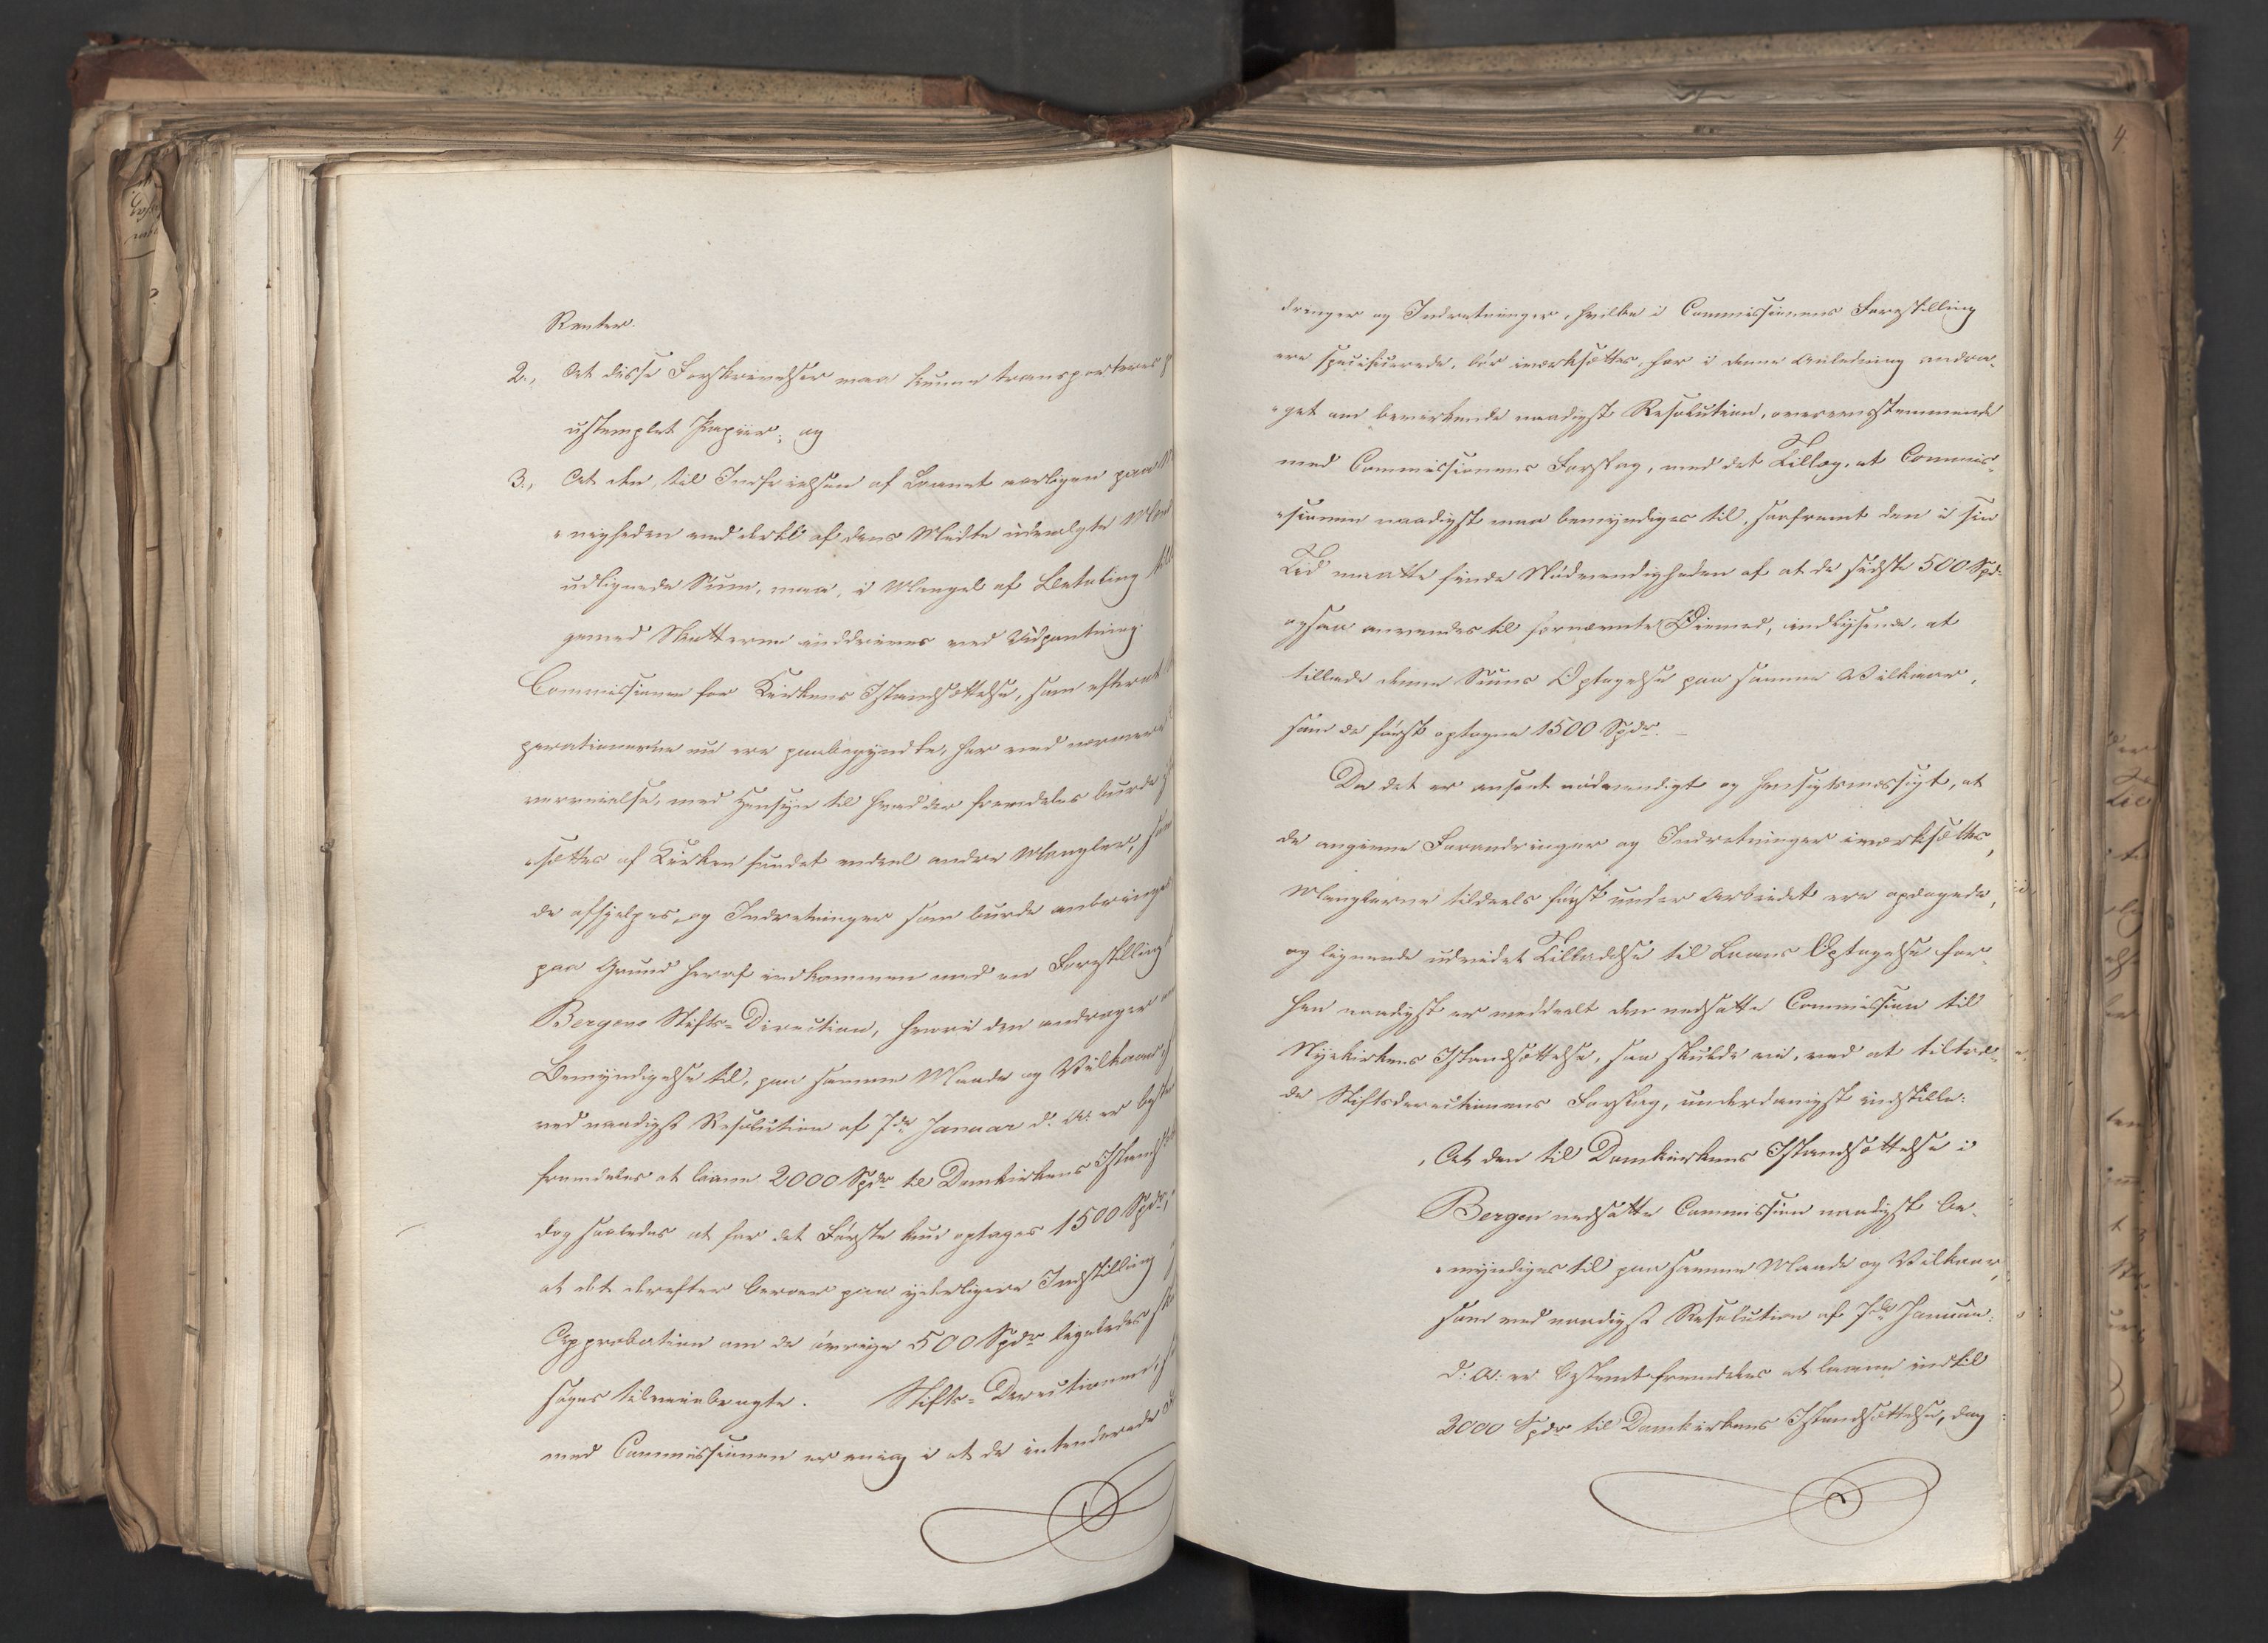 Renter.
2., At disse Forskrivelser maa kunne transporteres p
ustemplet Papiir; og
3., At den, til Indfrielsen af Laanet aarligen paa M
-nigheden ved dertil af dens Midte udvalgte Mænd
udlignede Sum, maa, i Mangel af Betaling till
gemed Skatterne inddrives ved Udpantning.
Commissionen for Kirkens Istandsættelse, som efterat
parationerne nu ere paabegyndte, har ved nærmere
overveielse, med Hensyn til hvad der fremdeles burde
-sættes af Kirken fundet endeel andre Mangler, som
de afhjelpes, og Indretninger som burde anbringes
paa Grund heraf indkommen med en Forestilling
Bergens Stifts-Direction, hvori den andrager om
Bemyndigelse til, paa samme Maade og Vilkaar,
ved naadigst Resolution af 7de Januar d: A: er beste
fremdeles at laane 2000 Spdr til Domkirkens Istands
dog saaledes at for det Første kun optages 1500 Spdr,
at det derefter beroer paa yderligere Indstilling
Approbation om de øvrige 500 Spdr ligeledes
søges tilveiebragte. Stifts-Directionen,
med Commissionen er enig i at de intenderede
dringer og Indretninger, hvilke i Commissionens Forestilling
ere specificerede, bør iværksættes, har i denne Anledning andra-
-get om bevirkende naadigst Resolution, overeensstemmende
med Commissionens Forslag, med det Tillæg, at Commis-
-sionen naadigst maa bemyndiges til, saafremt den i sin
Tid maatte finde Nødvendigheden af at de sidste 500 Spd:
ogsaa anvendes til fornævnte Øiemed, indlysende, at
tillade denne Sums Optagelse paa samme Vilkaar,
som de først optagne 1500 Spdr. -
Da det er anseet nødvendigt og hensigtsmæssigt, at
de angivne Forandringer og Indretninger iværksættes,
Manglerne tildeels først under Arbeidet ere opdagede,
og lignende udvidet Tilladelse til Laans Optagelse for-
hen naadigst er meddeelt den nedsatte Commission til
Nykirkens Istandsættelse, saa skulde vi, ved at tiltræ-
de Stiftsdirectionens Forslag, underdanigst indstille:
At den til Domkirkens Istandsættelse i
Bergen nedsatte Commission naadigst be-
-myndiges til paa samme Maade og Vilkaar,
som ved naadigst Resolution af 7de Januar
d: A: er bestemt fremdeles at laane indtil
2000 Spdr til Domkirkens Istandsættelse, dog